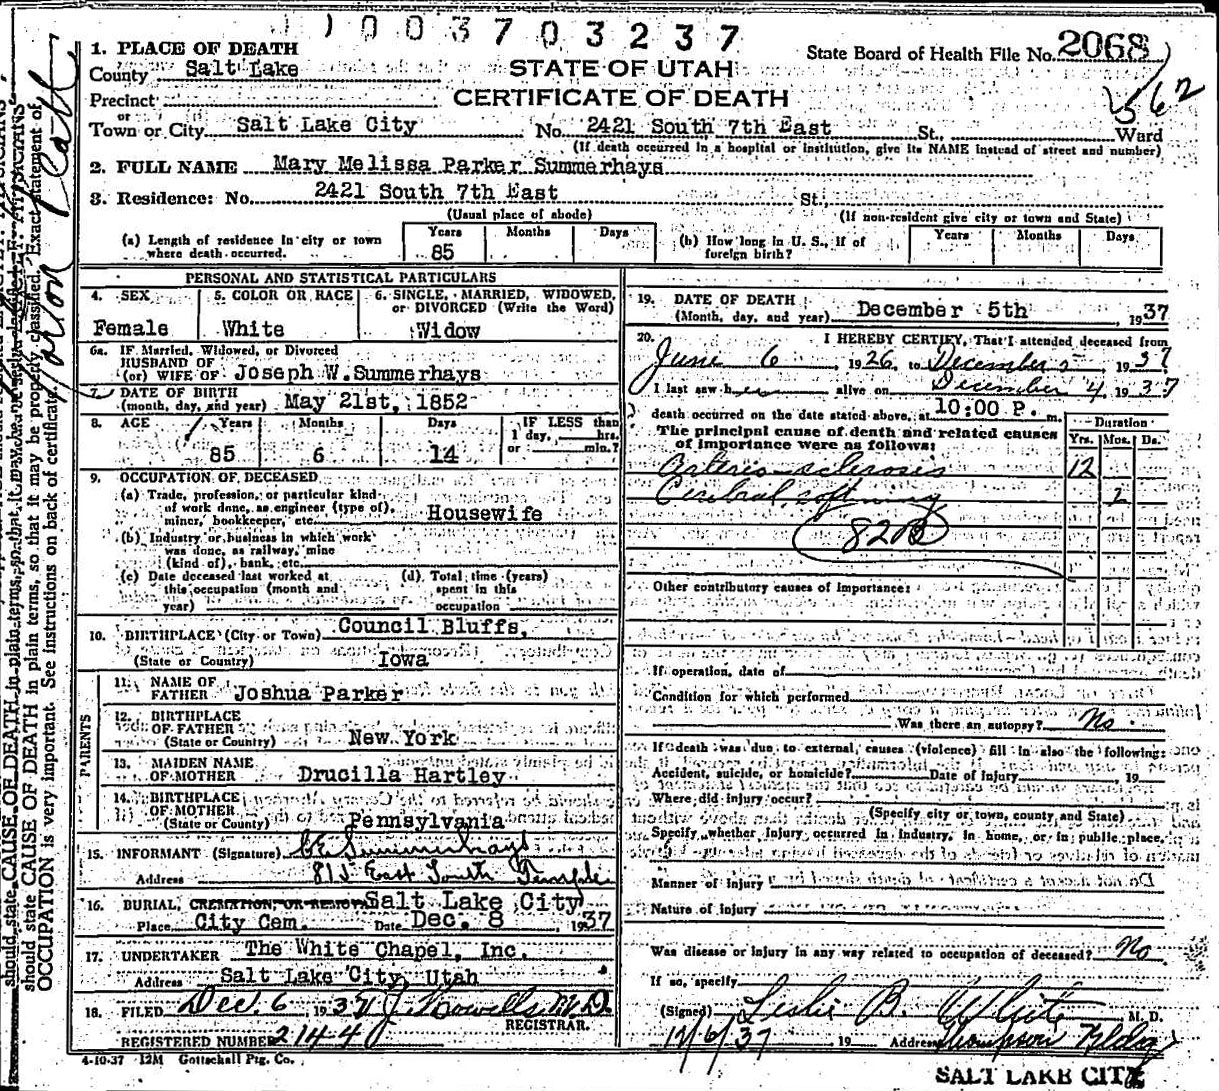 1003703237
1. PLACE OF DEATH
State Board of Health File No. 2068
County Salt Lake
STATE OF UTAH
562
Precinct
CERTIFICATE OF DEATH
or
Town or City Salt Lake City No. 2421 South 7th East St., Ward
(If death occurred in a hospital or institution, give its NAME instead of street and number)
2. FULL NAME Mary Melissa Parker Summerhays
3. Residence: No. 2421 South 7th East St.
(Usual place of abode) (If non-resident give city or town and State)
(a) Length of residence in city or town where death occurred. Years 85 Months Days
(b) How long in U. S., if of foreign birth? Years Months Days
PERSONAL AND STATISTICAL PARTICULARS
4. SEX Female
5. COLOR OR RACE White
6. SINGLE, MARRIED, WIDOWED, or DIVORCED (Write the Word) Widow
6a. IF Married, Widowed, or Divorced
HUSBAND OF
(or) WIFE OF Joseph W. Summerhays
7. DATE OF BIRTH
(month, day, and year) May 21st, 1852
8. AGE Years 85 Months 6 Days 14
IF LESS than 1 day, hrs. or min.?
9. OCCUPATION OF DECEASED
(a) Trade, profession, or particular kind
of work done, as engineer (type of),
miner, bookkeeper, etc. Housewife
(b) Industry or business in which work
was done, as railway, mine
(kind of), bank, etc.
(c) Date deceased last worked at
this occupation (month and
year)
(d) Total time (years)
spent in this
occupation
10. BIRTHPLACE (City or Town) Council Bluffs,
(State or Country) Iowa
PARENTS
11. NAME OF
FATHER Joshua Parker
12. BIRTHPLACE
OF FATHER
(State or Country) New York
13. MAIDEN NAME
OF MOTHER Drucilla Hartley
14. BIRTHPLACE
OF MOTHER
(State or Country) Pennsylvania
15. INFORMANT (Signature) C E Summerhays
Address 815 East South Temple
16. BURIAL, CREMATION OR REMOVAL Salt Lake City
Place City Cem. Date Dec. 8 1937
17. UNDERTAKER The White Chapel, Inc.
Address Salt Lake City, Utah
18. FILED Dec. 6 1937 M.D.
REGISTRAR.
REGISTERED NUMBER 2144
4-10-37 12M Gottschall Ptg. Co.
19. DATE OF DEATH
(Month, day, and year) December 5th 1937
20. I HEREBY CERTIFY, That I attended deceased from
June 6, 1926, to December 5 1937
I last saw her alive on December 4, 1937
death occurred on the date stated above, at 10:00 P. m.
The principal cause of death and related causes
of importance were as follows:
Duration
Yrs. Mos. Ds.
Arterio-sclerosis 12
Cerebral softening 2
82B
Other contributory causes of importance:
If operation, date of
Condition for which performed
Was there an autopsy? No
If death was due to external causes (violence) fill in also the following:
Accident, suicide, or homicide? Date of injury 19
Where did injury occur?
(Specify city or town, county and State)
Specify whether injury occurred in industry, in home, or in public place.
Manner of injury
Nature of injury
Was disease or injury in any way related to occupation of deceased? No
If so, specify
(Signed) Leslie B. White M. D.
12/6/37 19 Address Thompson Bldg
SALT LAKE CITY
should state CAUSE OF DEATH in plain terms, so that it may be properly classified. Exact statement of
OCCUPATION is very important. See instructions on back of certificate.